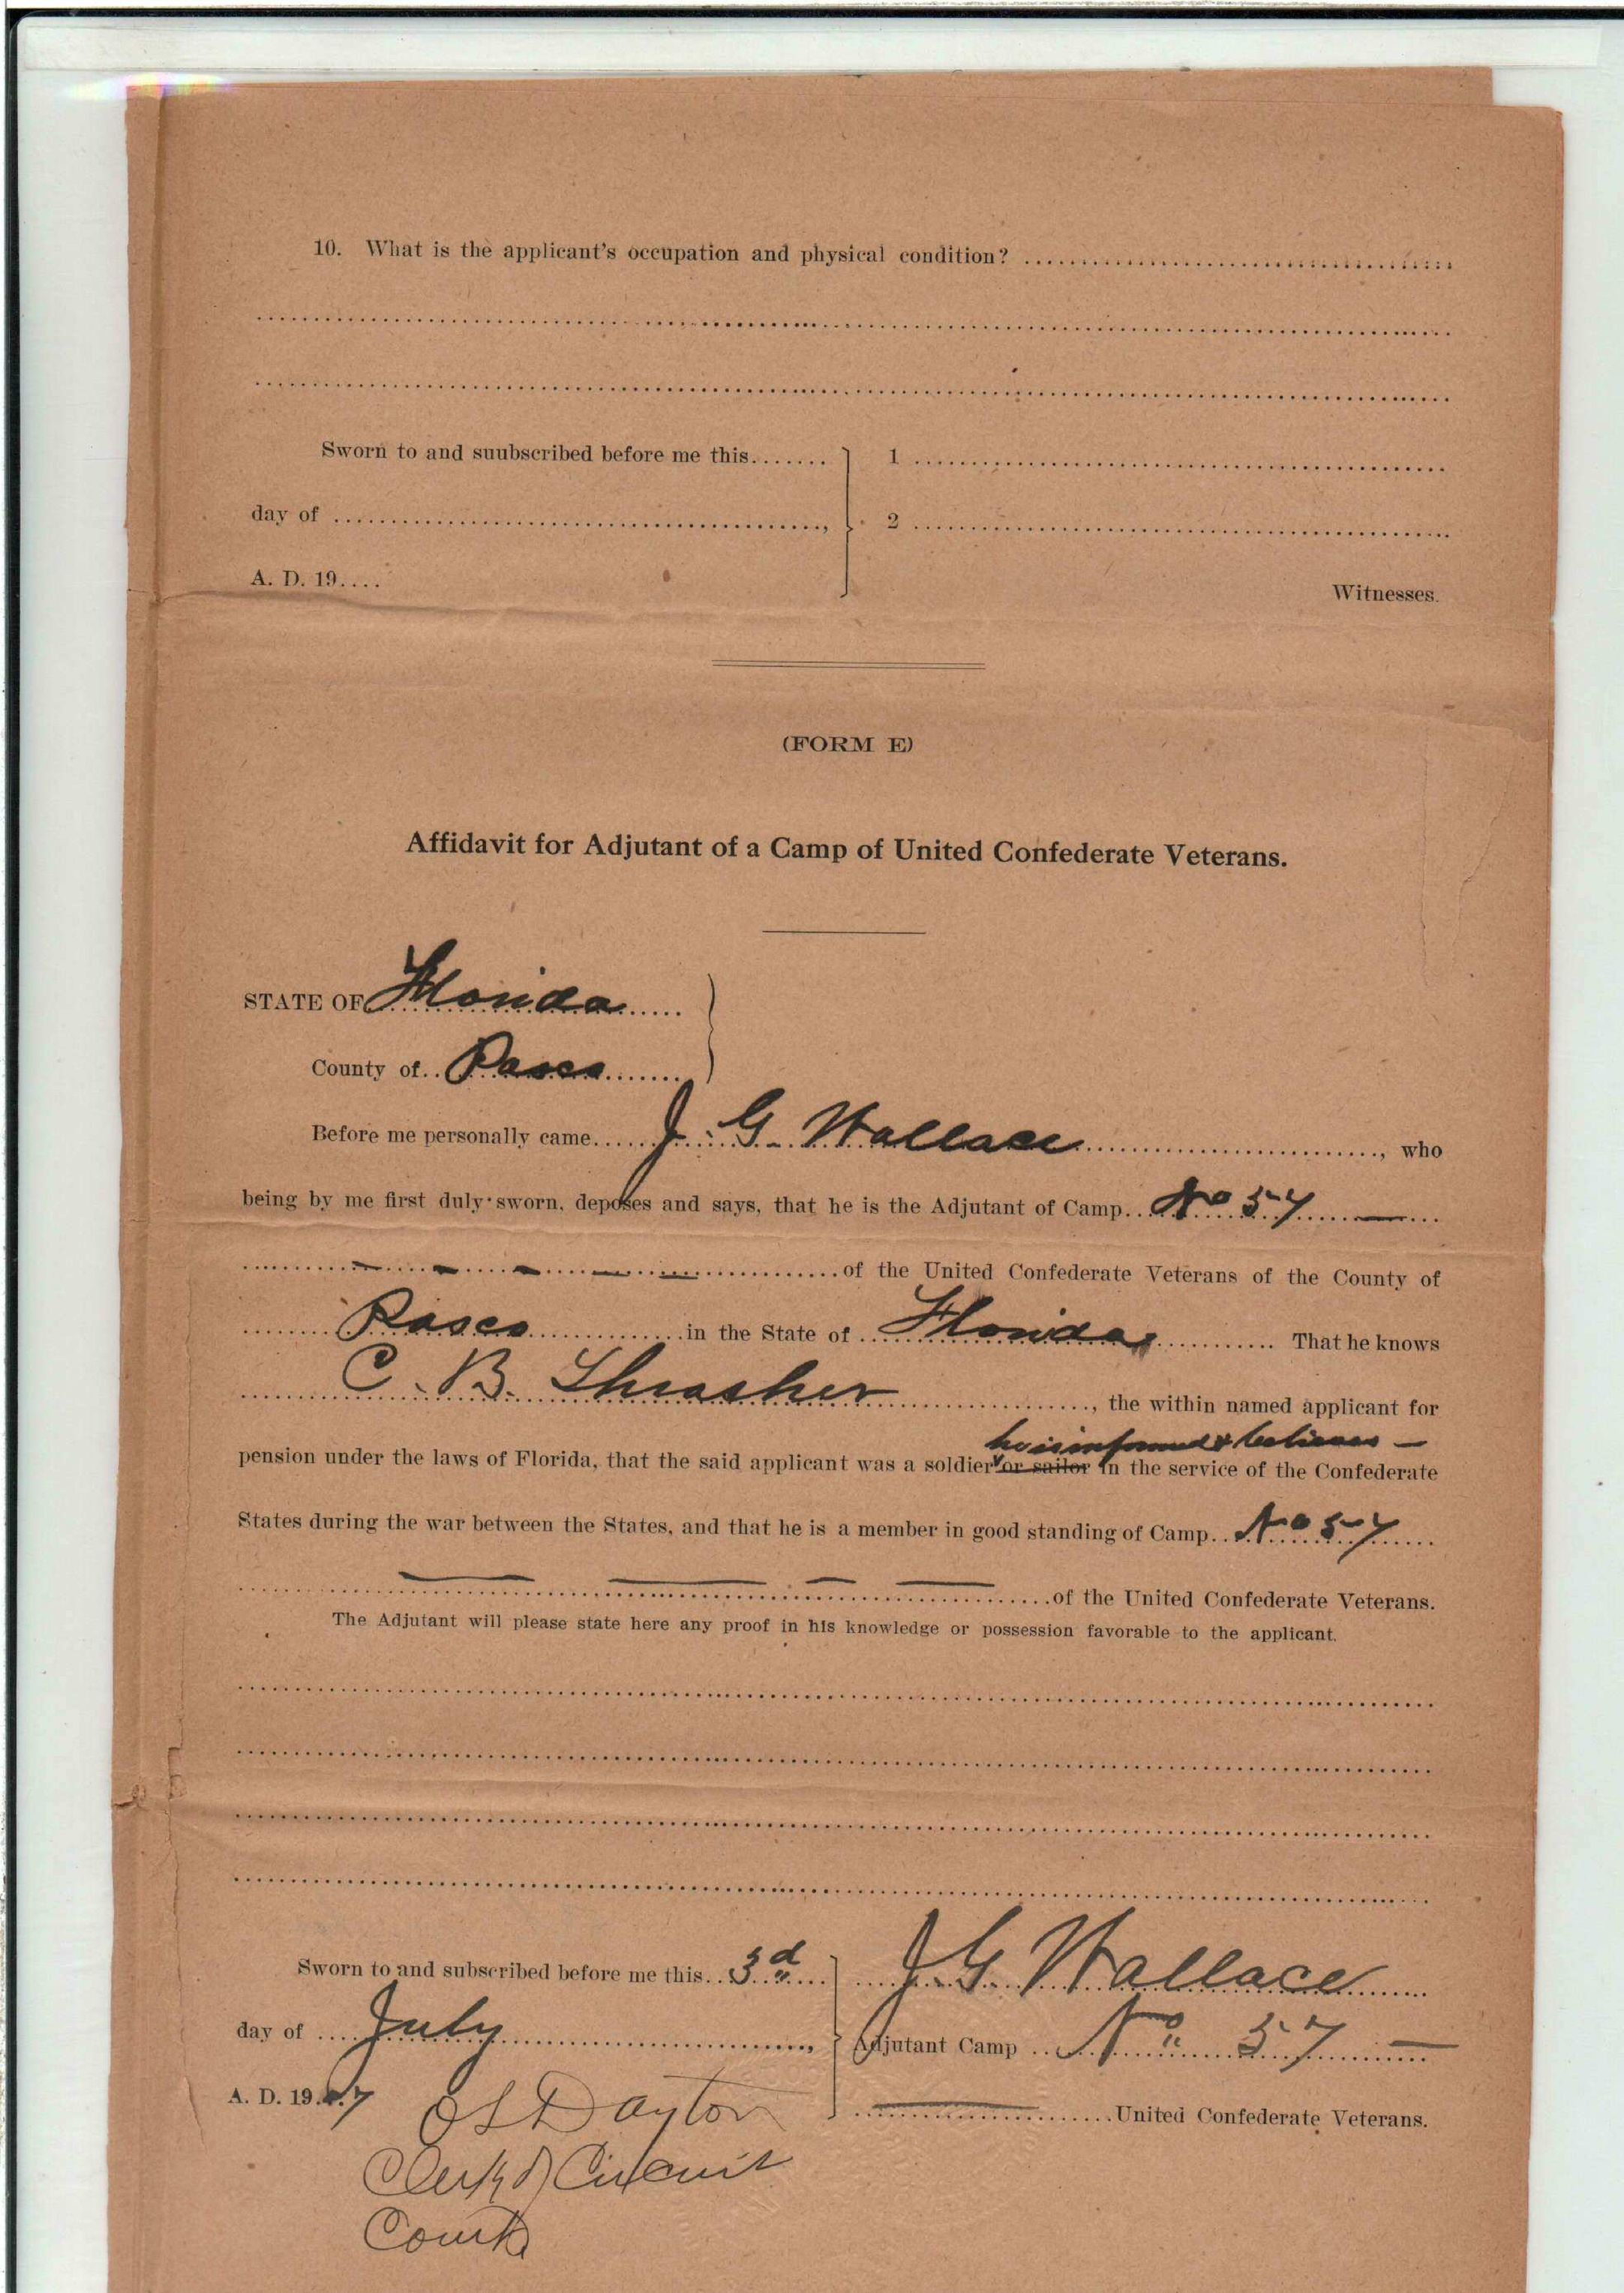 10. What is the applicant's occupation and physical condition?
Sworn to and suubscribed before me this....... 1
day of ......, 2
A. D. 19....
Witnesses.
(FORM E)
Affidavit for Adjutant of a Camp of United Confederate Veterans.
STATE OF Florida
County of Pasco
Before me personally came J. G. Wallace, who
being by me first duly sworn, deposes and says, that he is the Adjutant of Camp No 57
of the United Confederate Veterans of the County of
Pasco in the State of Florida. That he knows
C. B. Thrasher, the within named applicant for
he is informed & believes
pension under the laws of Florida, that the said applicant was a soldier or sailor in the service of the Confederate
States during the war between the States, and that he is a member in good standing of Camp No 57
of the United Confederate Veterans.
The Adjutant will please state here any proof in his knowledge or possession favorable to the applicant.
Sworn to and subscribed before me this 3d J. G. Wallace
day of July, Adjutant Camp No 57
A. D. 1907 United Confederate Veterans.
Dayton
Clerk of Circuit
Court